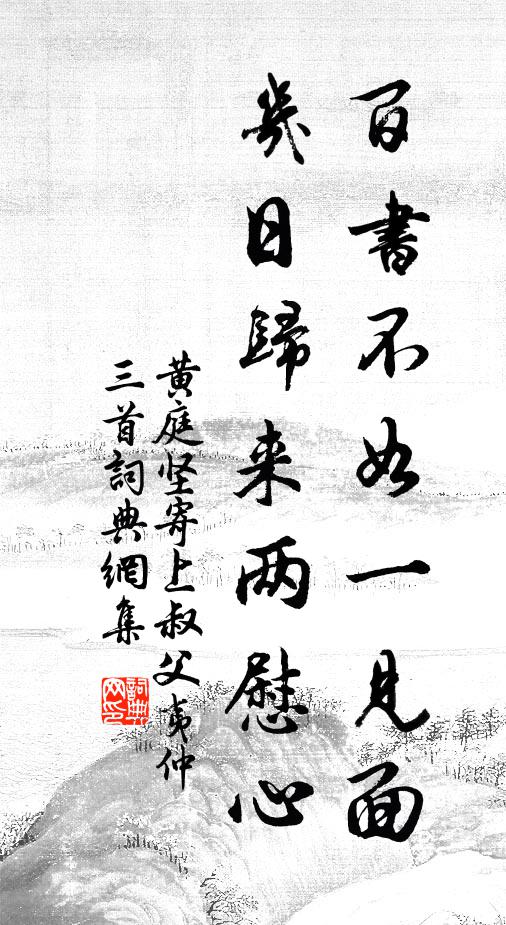 百書不如一見面
幾日歸来两慰心
黄庭坚寄上叔父夷仲
三首詞典網集
詞典
网印